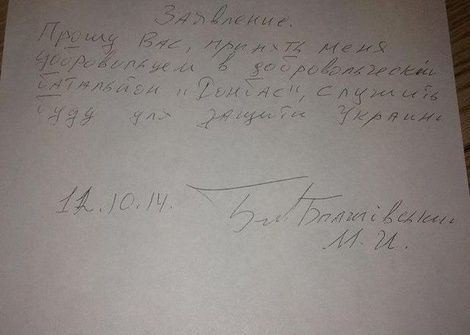 Заявление.
Прошу Вас, принять меня
добровольцем в добровольчески
батальйон "Донбас", служить
буду для защити Украини
12.10.14.
М. И.